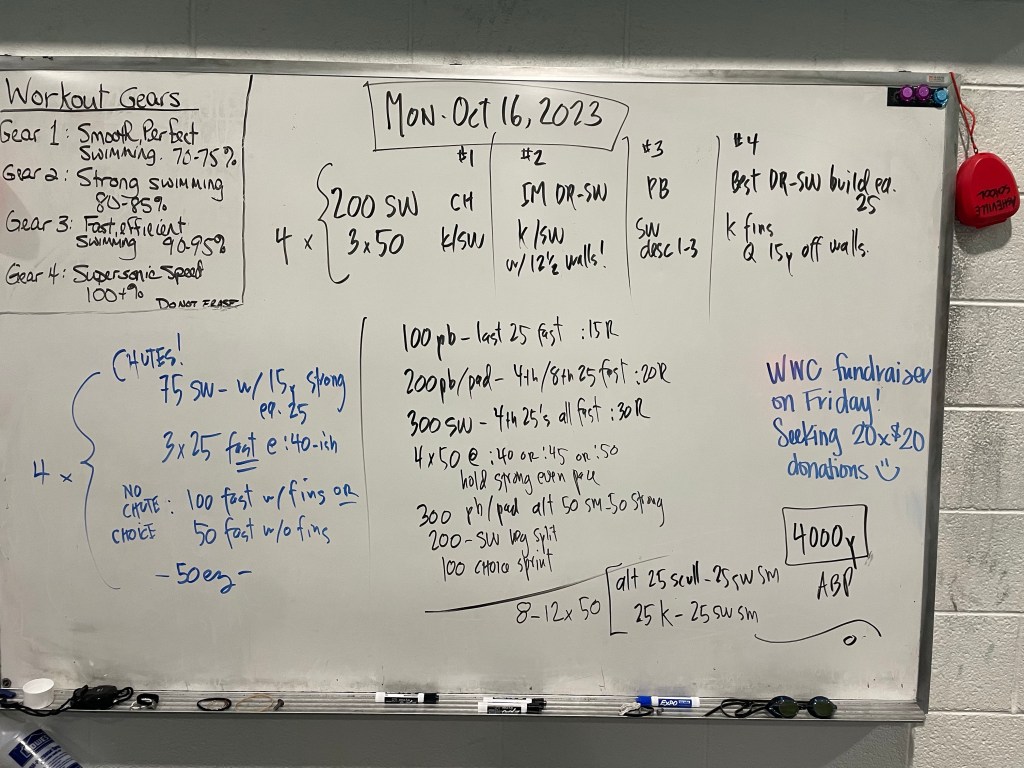 Workout Gears
Gear 1: Smooth, Perfect
Swimming. 70-75%
Gear 2: Strong swimming
80-85%
Gear 3: Fast, efficient
swimming 90-95%
Gear 4: Supersonic Speed
100+%
DO NOT ERASE
MON. Oct 16, 2023
#1 #2 #3 #4
4 x { 200 SW CH IM DR-SW PB Best DR-SW build ea. 25
3x50 k/sw k/sw w/ 12½ walls! SW desc 1-3 k fins @ 15y off walls.
CHUTES!
4 x {
75 SW - w/ 15y strong
ea. 25
3x25 fast @ :40-ish
NO CHUTE: 100 fast w/ fins OR
CHOICE 50 fast w/o fins
- 50 ez -
100 pb - last 25 fast :15R
200 pb/pad - 4th/8th 25 fast :20R
300 SW - 4th 25's all fast :30R
4x50 @ :40 or :45 or :50
hold strong even pace
300 pb/pad alt 50 sm-50 strong
200 - SW neg split
100 CHOICE sprint
8-12x50 [ alt 25 scull - 25 sw sm
25 k - 25 sw sm
WWC fundraiser
on Friday!
Seeking 20x$20
donations
4000y
ABP
ASHEVILLE
SCHOOL
EXPO